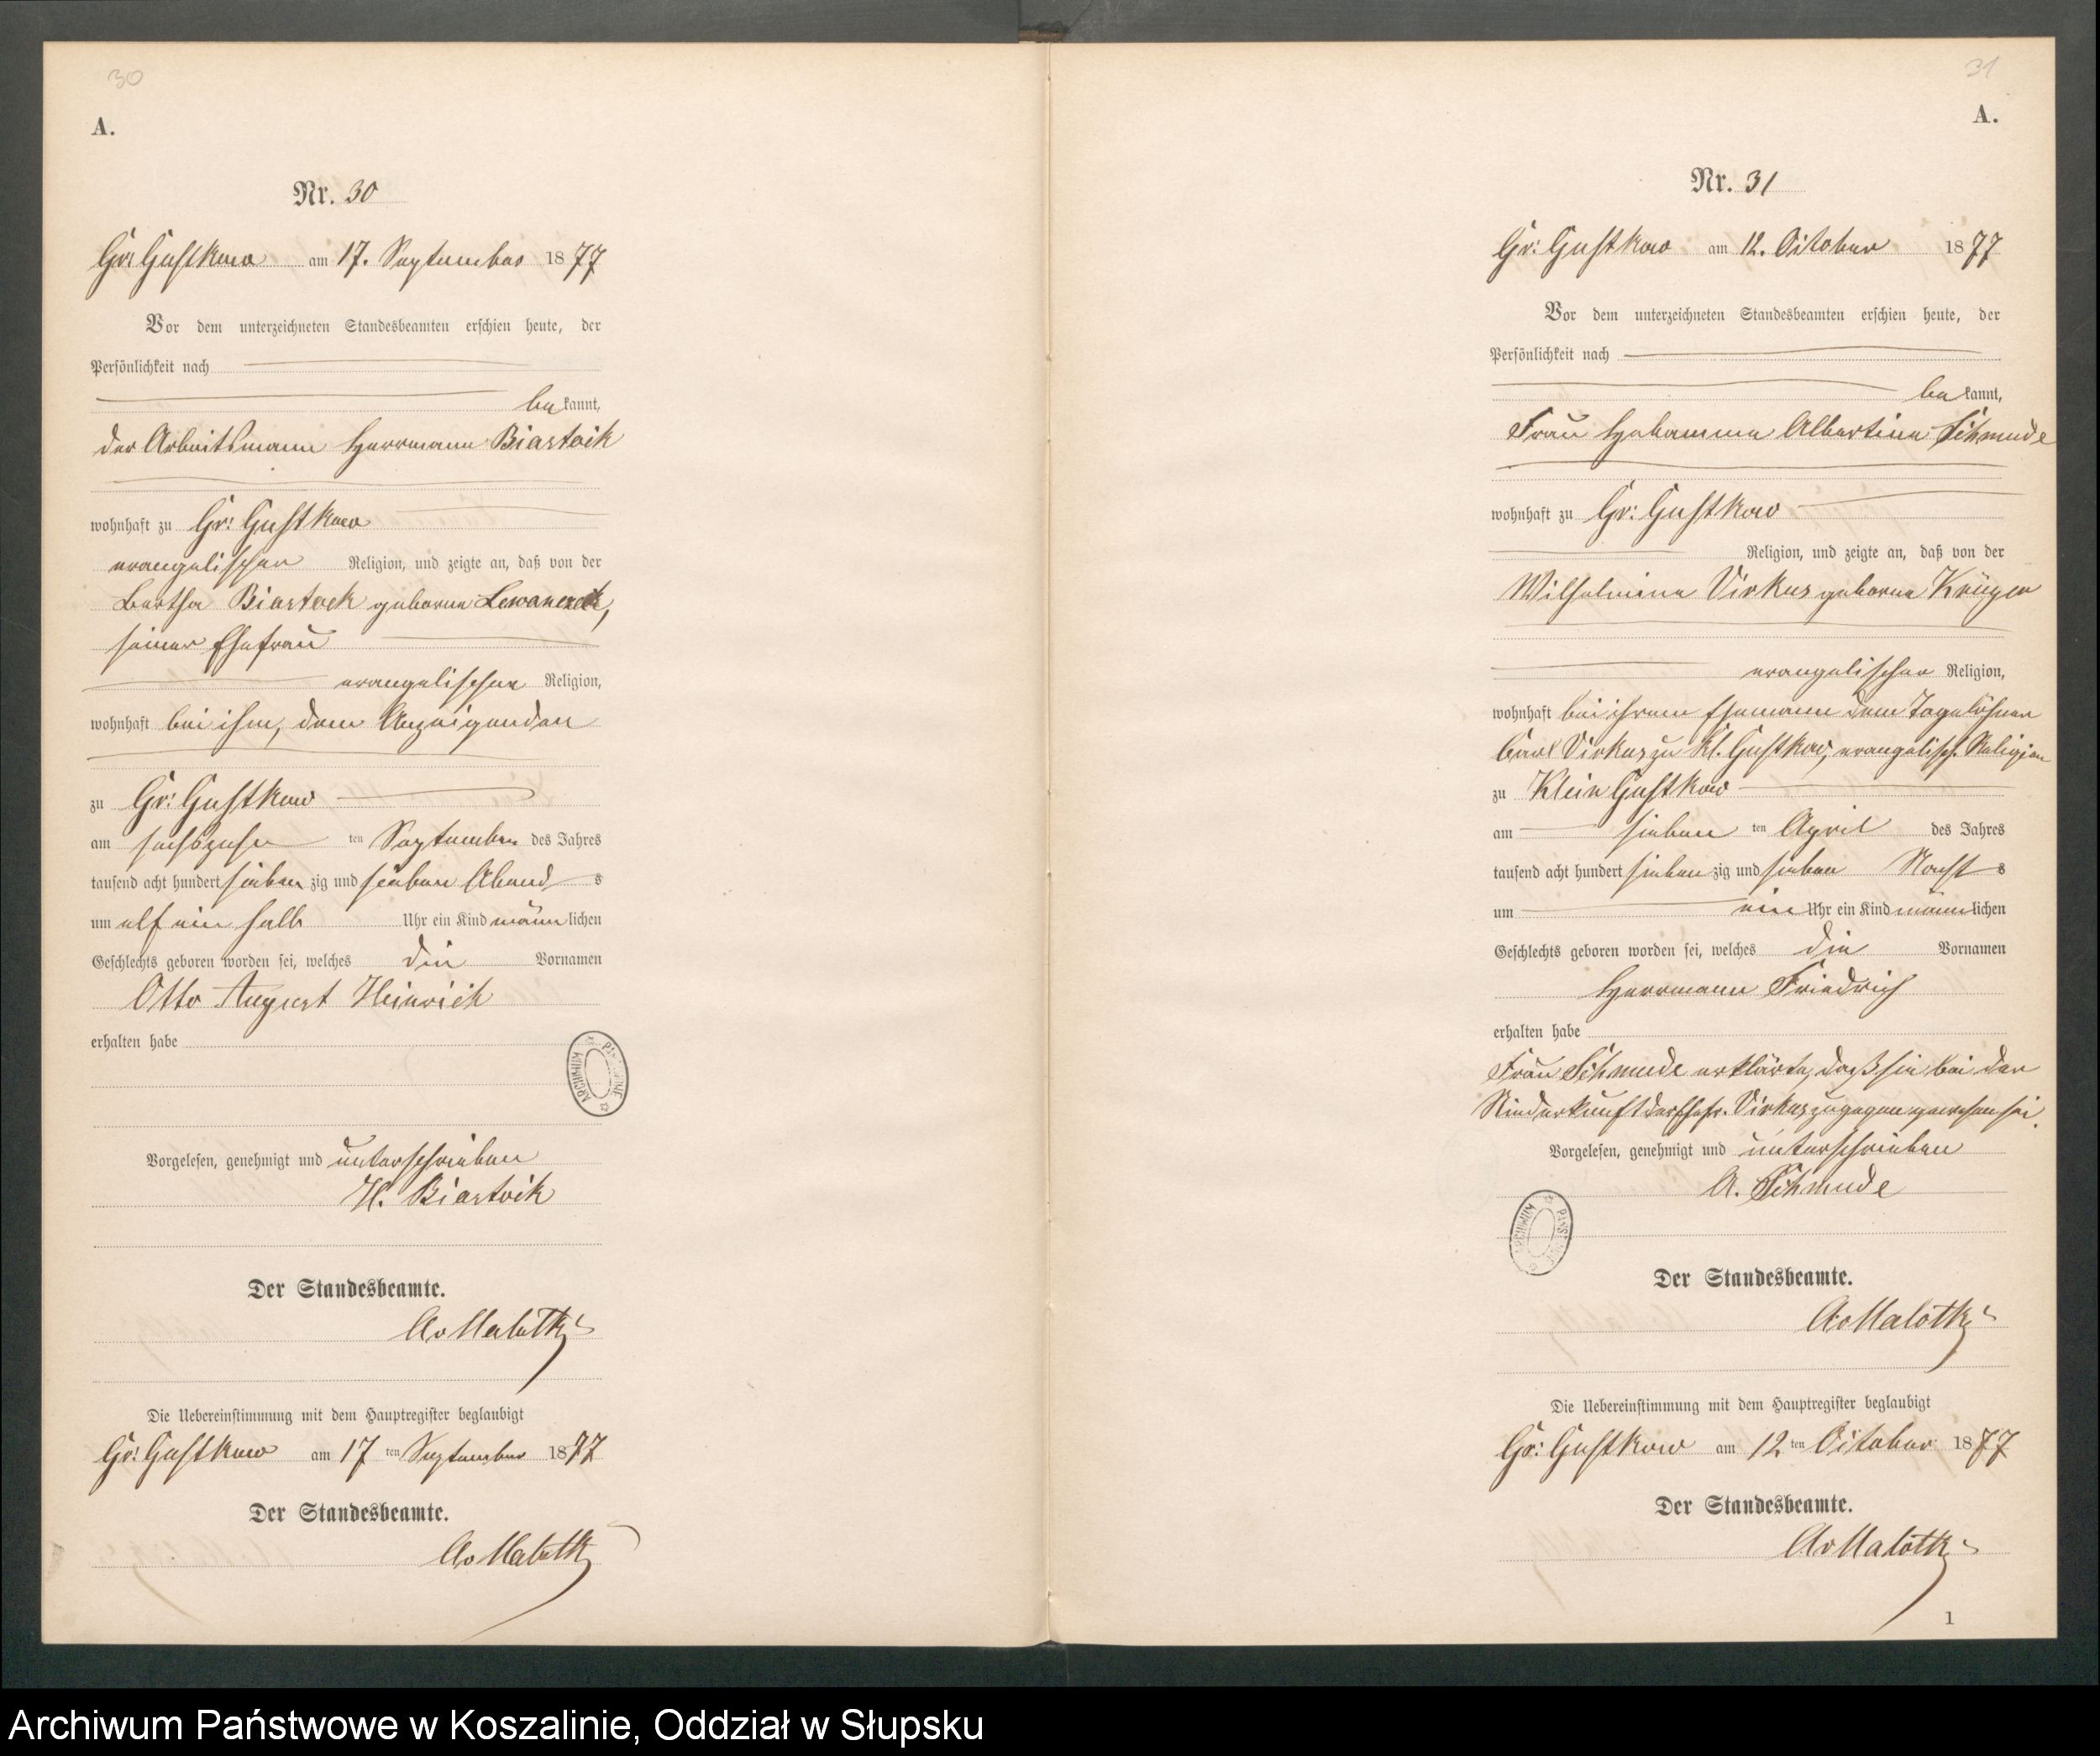 30
A.
Nr. 30
Gr: Gustkow am 17. September 1877
Vor dem unterzeichneten Standesbeamten erschien heute, der
Persönlichkeit nach
bekannt,
der Arbeitsmann Herrmann Biastock
wohnhaft zu Gr: Gustkow
evangelischer Religion, und zeigte an, daß von der
Bertha Biastock geborne
seiner Ehefrau
evangelischer Religion,
wohnhaft bei ihm, dem Anzeigenden
zu Gr: Gustkow
am sechszehn ten September des Jahres
tausend acht hundert sieben zig und sieben Abend s
um elf ein halb Uhr ein Kind männlichen
Geschlechts geboren worden sei, welches die Vornamen
Otto August Heinrich
erhalten habe
ARCHIWUM PAŃSTWOWE
Vorgelesen, genehmigt und unterschrieben
H. Biastock
Der Standesbeamte.
AvMalottki
Die Uebereinstimmung mit dem Hauptregister beglaubigt
Gr: Gustkow am 17 ten September 1877
Der Standesbeamte.
AvMalottki
31
A.
Nr. 31
Gr: Gustkow am 12. October 1877
Vor dem unterzeichneten Standesbeamten erschien heute, der
Persönlichkeit nach
bekannt,
Frau Hebamme Albertine Schmude
wohnhaft zu Gr: Gustkow
Religion, und zeigte an, daß von der
Wilhelmine Virkus geborne Krüger
evangelischer Religion,
wohnhaft bei ihrem Ehemann dem Tagelöhner
Carl Virkus zu Kl. Gustkow, evangelisch. Religion
zu Klein Gustkow
am sieben ten April des Jahres
tausend acht hundert sieben zig und sieben Nacht s
um ein Uhr ein Kind männlichen
Geschlechts geboren worden sei, welches die Vornamen
Herrmann Friedrich
erhalten habe
Frau Schmude erklärte, daß sie bei der
Niederkunft der Ehefr. Virkus zugegen gewesen sei.
Vorgelesen, genehmigt und unterschrieben
A. Schmude
ARCHIWUM PAŃSTWOWE
Der Standesbeamte.
AvMalottki
Die Uebereinstimmung mit dem Hauptregister beglaubigt
Gr: Gustkow am 12 ten October 1877
Der Standesbeamte.
AvMalottki
1
Archiwum Państwowe w Koszalinie, Oddział w Słupsku